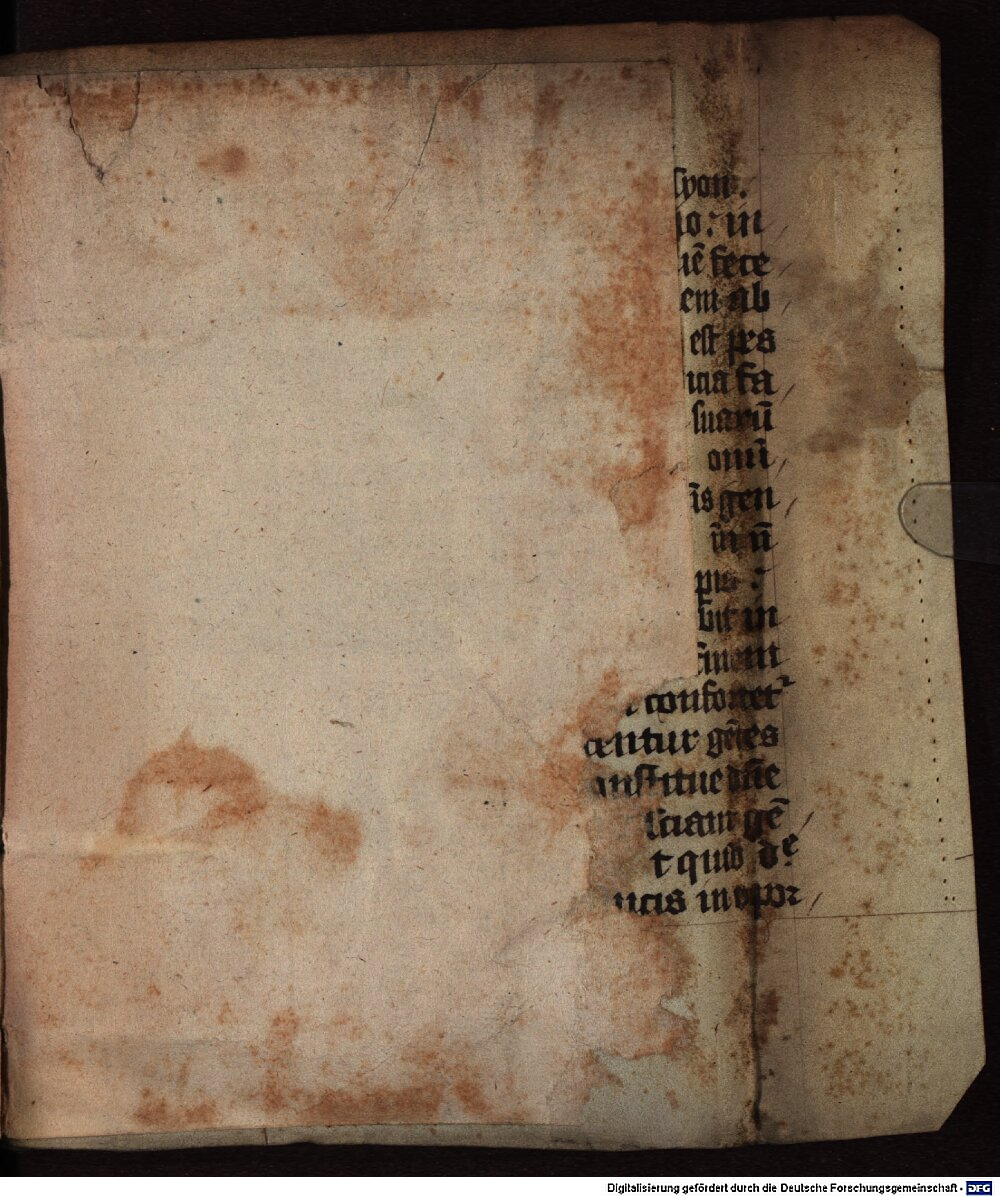 syon.
io: in
iē fece
em ab
est prs
icia fa
suarū
omī
īs gen
in ū
pia :
bit in
iment
confortet
centur gētes
onstitue dn̄e
sciant gē
t quid de
ucis in opor
Digitalisierung gefördert durch die Deutsche Forschungsgemeinschaft - DFG